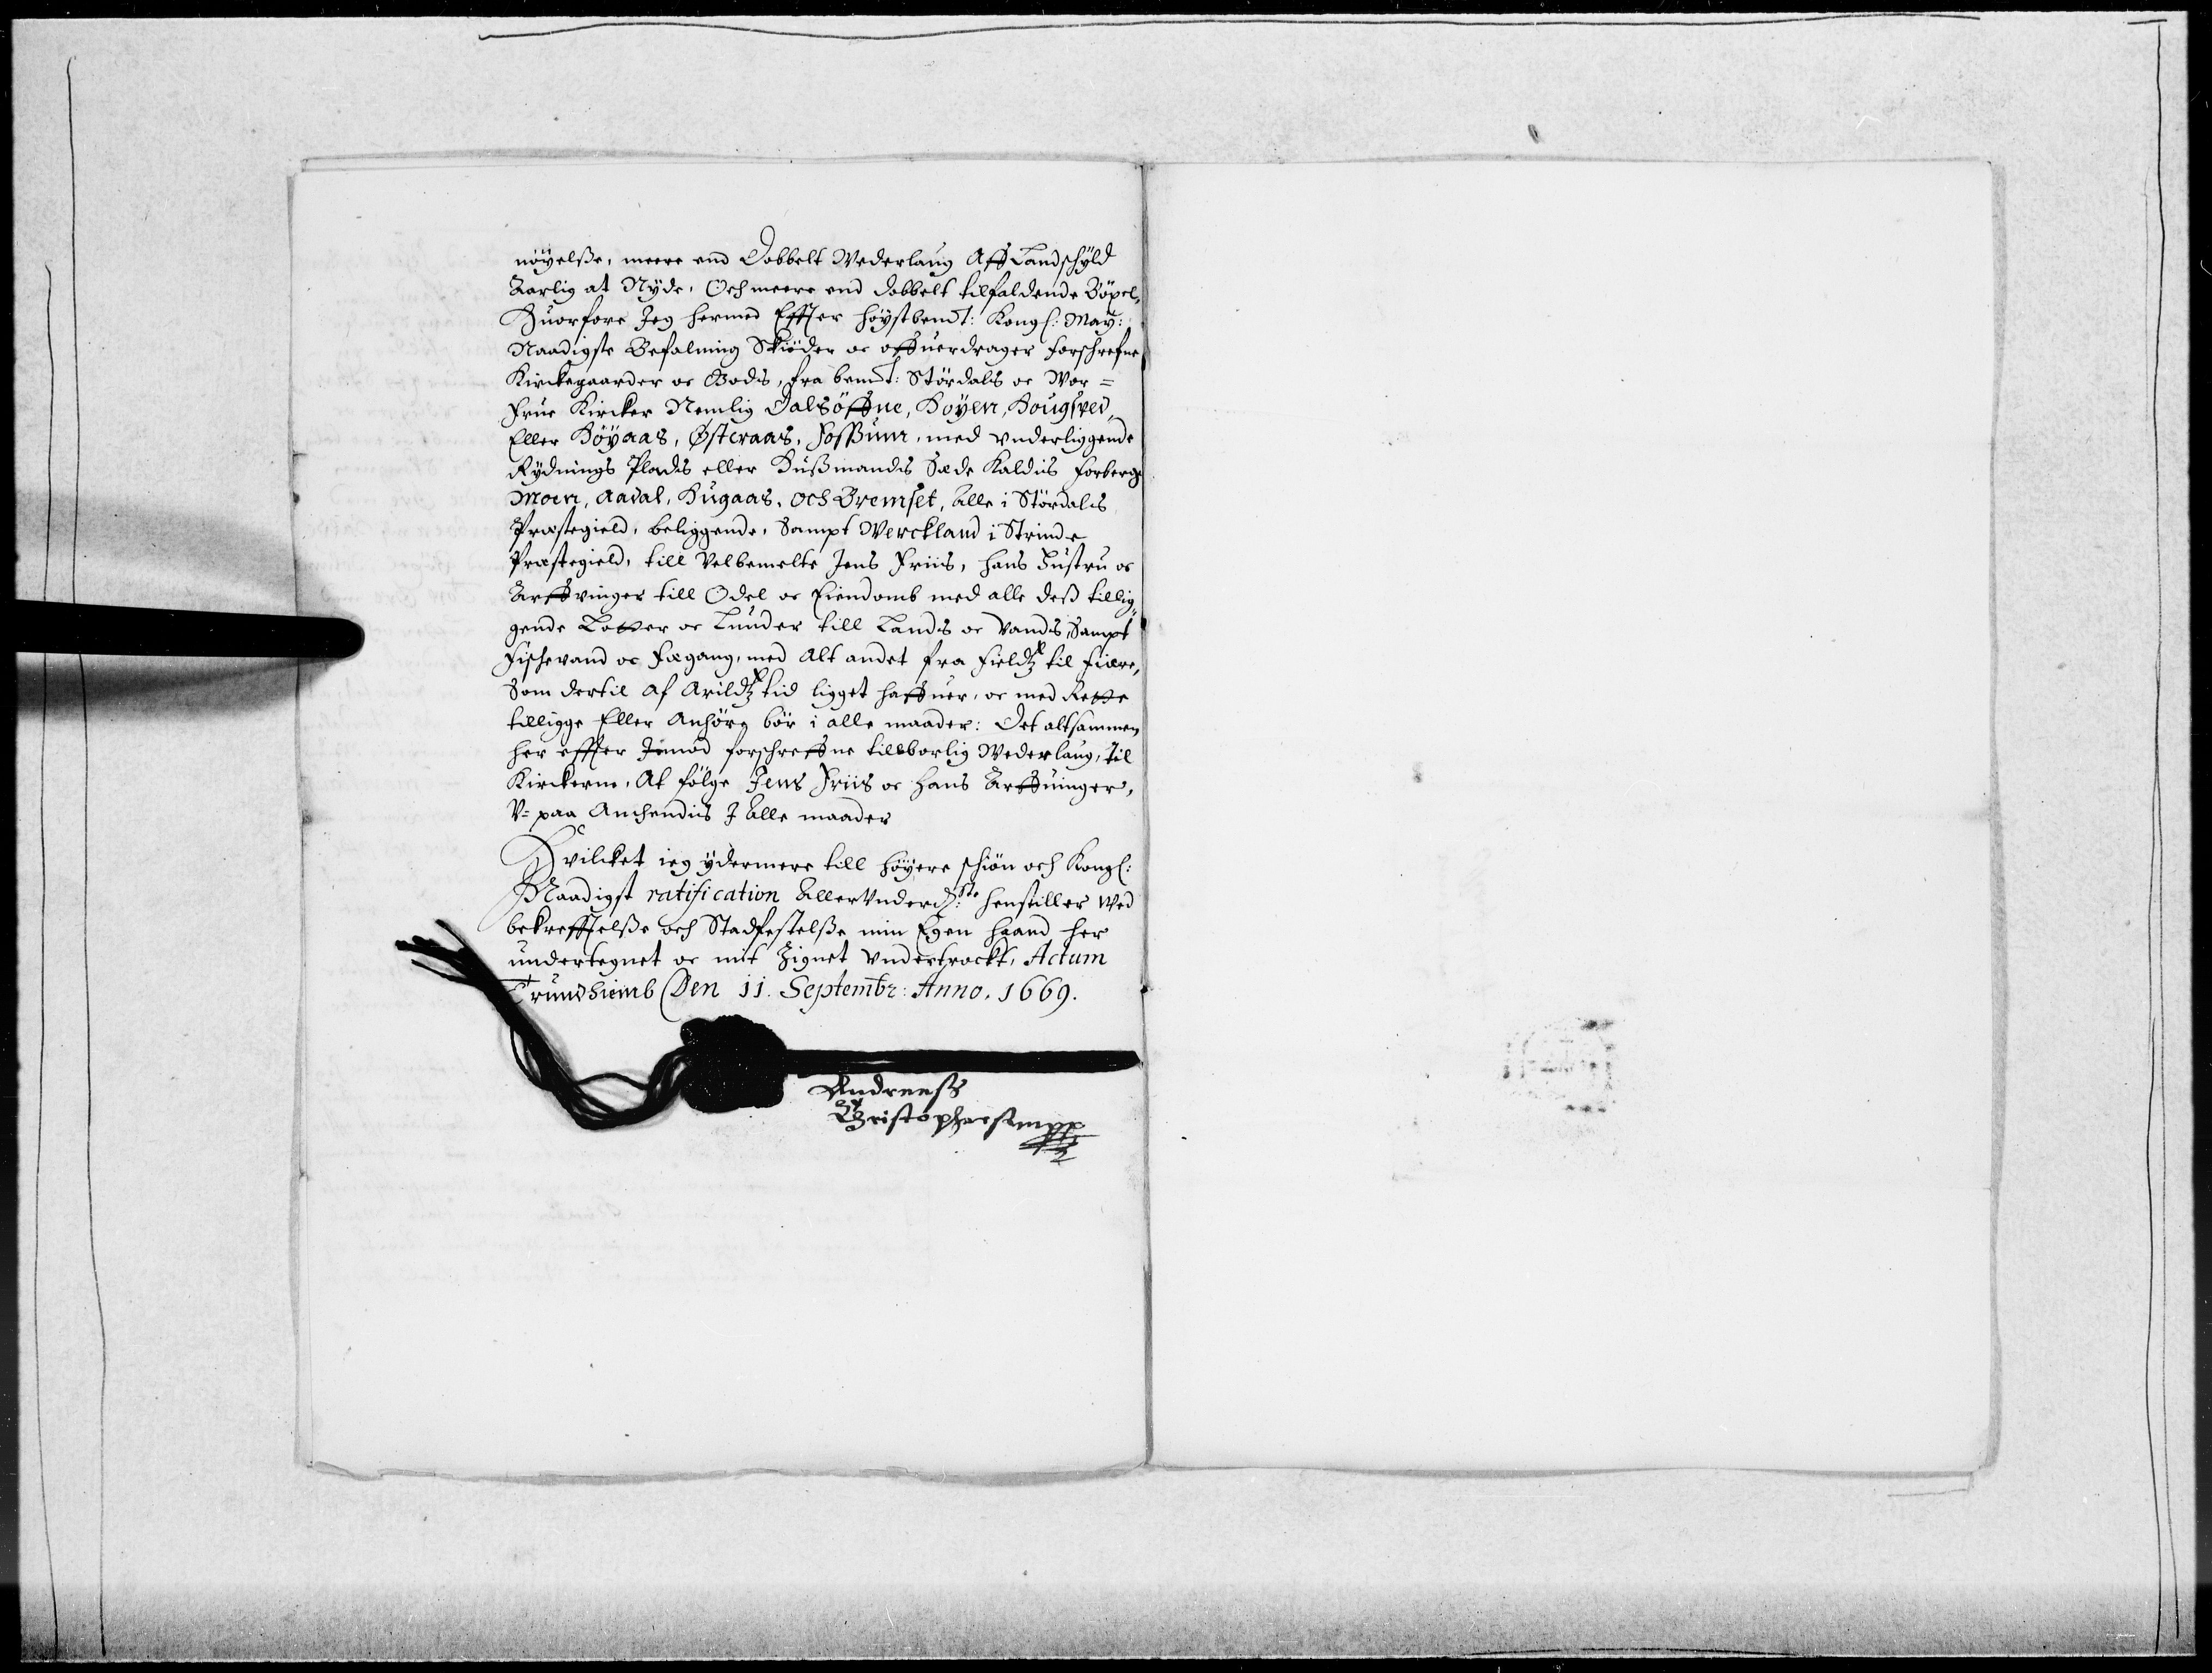 nöyelße, meere end Dobbelt Wederlaug Aff Landschyld
Aarlig at Nyde, Och meere end dobbelt tilfaldende Böxel,
Huorfore Jeg hermed Effter höystbemt: Kongl: May:
Naadigste Befalning Skiöder oc offuerdrager forschrefne
Kirckegaarder oc Godis, fra bemt: Stördals oc Wor =
Frue Kircker Nemlig Dalsöffne, Höyen, Hougsved,
Eller Höyaas, Østeraas, Foßum, med underliggende
Rydnings Pladis eller Hußmands Sæde Kaldis Forberg
Moen, Aadal, Hugaas, och Bremset, Alle i Stördals
Præstegield, beliggende, Sampt Werckland i Strinde
Præstegield, till Velbemelte Jens Friis, hans Hustru oc
Arffvinger till Odel oc Eiendomb med alle deß tillig„
gende Lotter oc Lunder till Lands oc Vands, Sampt
Fischevand oc Fægang, med Alt andet fra Fieldtz til Fiære,
Som dertil Af Arildtz tid ligget haffuer, oc med Rette
tilligge Eller Anhöre bör i alle maader: Det altsammen
her effter Jmod forschreffne tillborlig Wederlaug, til
Kirckerne, At fölge Jens Friis oc hans Arffuinger,
V= paa Anchendiis J Alle maader
Hvilcket ieg ydermere till höyere schiön och Kongl:
Naadigst ratification Allerunderd:ste henstiller Med
bekrefftelße och Stadfestelße min Egen haand her
undertegnet oc mit Zignet Undertrockt, Actum
Trundhiemb Den 11. Septembr: Anno. 1669.
Andreeß
Christophersen mpp